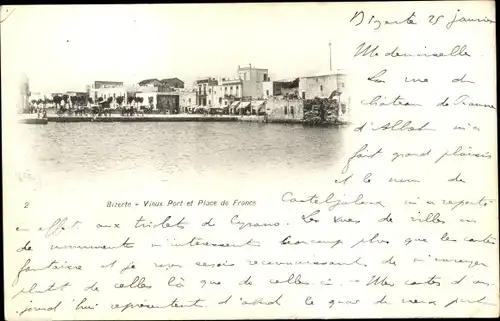 Bizerte 25 janvier
Mademoiselle
La vue du
château de France
d'Albert m'a
fait grand plaisir
et le nom de
2
Bizerte - Vieux Port et Place de France
Casteljaloux m'a reporté
en effet aux triolets de Cyrano. Les vues de villes ou
de monuments m'intéressent beaucoup plus que les cartes
fantaisie et je vous serais reconnaissant de m'envoyer
plutôt de celles là que de celles-ci - Mes cartes d'au
jourd'hui représentent d'abord le quai du vieux port